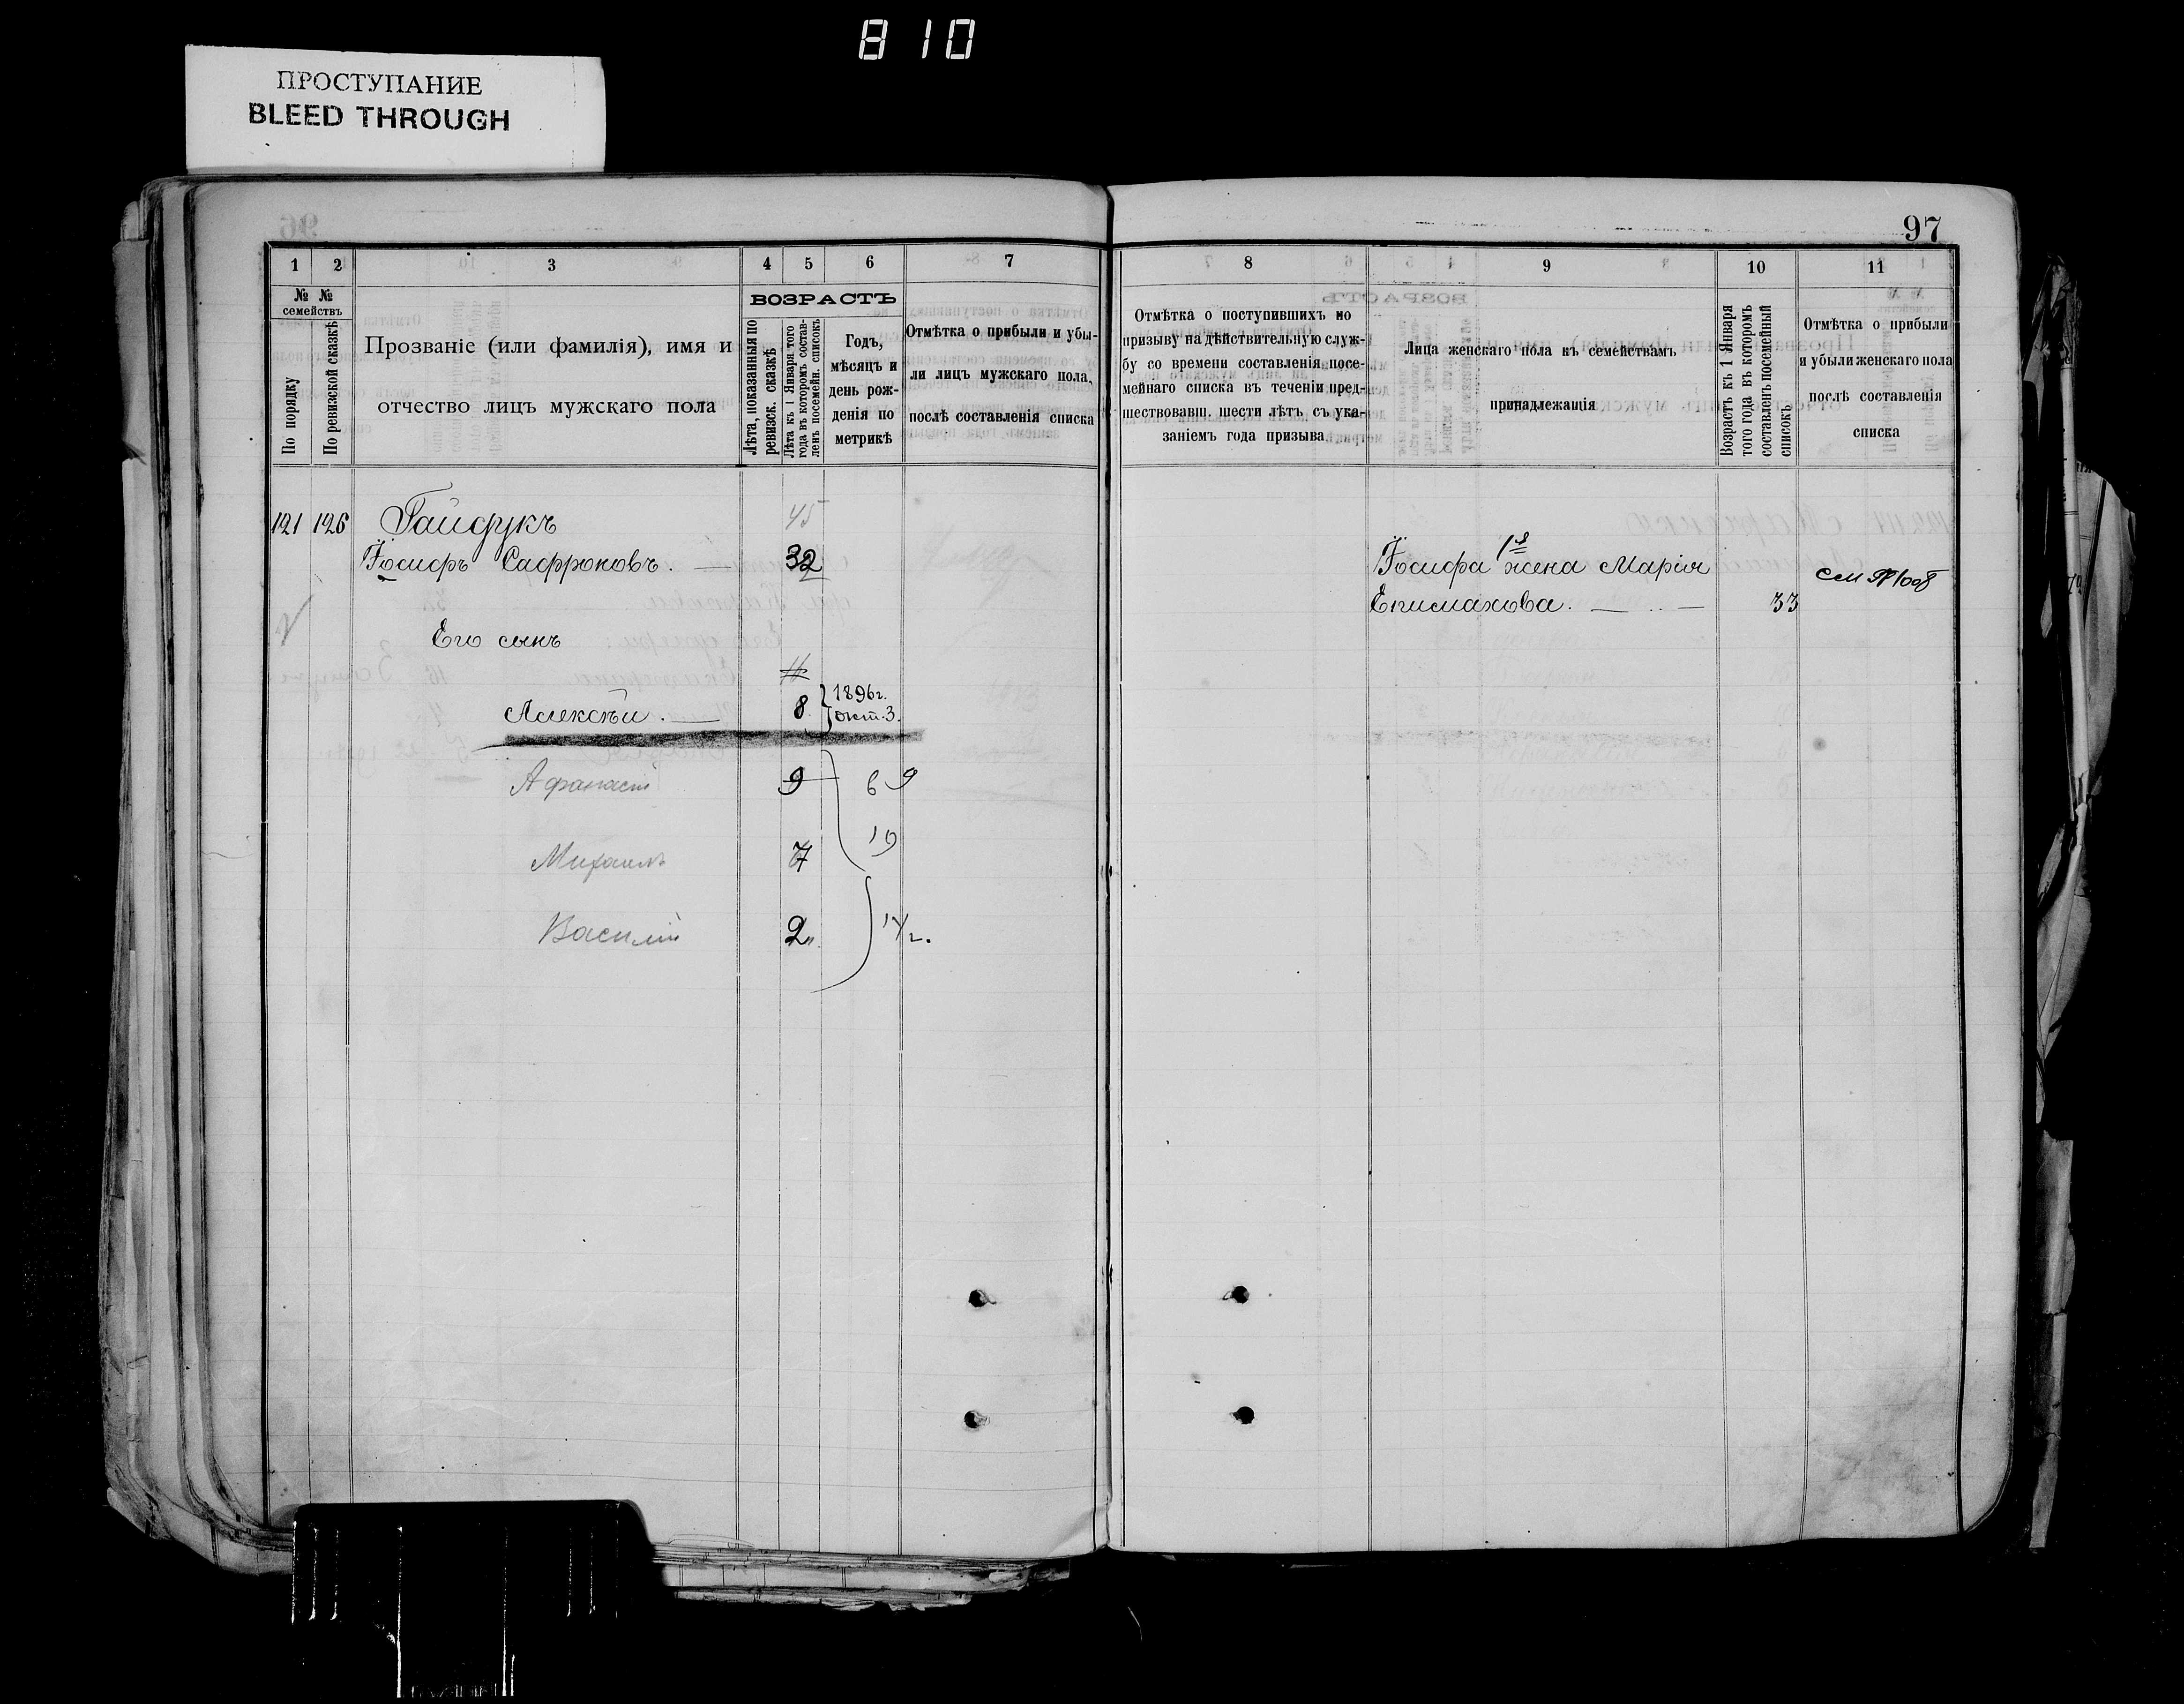 810
ПРОСТУПАНИЕ
BLEED THROUGH
97
1 2 3 4 5 6 7
№ № семействъ
По порядку
По ревизской сказкѣ
Прозваніе (или фамилія), имя и
отчество лицъ мужскаго пола
ВОЗРАСТЪ
Лѣта, показанныя по
ревизск. сказкѣ
Лѣта къ 1 Января того
года въ которомъ состав-
ленъ посемейн. списокъ
Годъ,
мѣсяцъ и
день рож-
денія по
метрикѣ
Отмѣтка о прибыли и убы-
ли лицъ мужскаго пола,
послѣ составленія списка
121 126 Гайдукъ 45
Іосифъ Сафроновъ. 32
Его сынъ
16
Алексѣй. 8 1896г.
окт. 3.
Афанасій 9 6 9
Михаилъ 7 10
Василій 2 14г.
8 9 10 11
Отмѣтка о поступившихъ по
призыву на дѣйствительную служ-
бу со времени составленія посе-
мейнаго списка въ теченіи пред-
шествовавш. шести лѣтъ съ ука-
заніемъ года призыва
Лица женскаго пола къ семействамъ
принадлежащія
Возрастъ къ 1 Января
того года въ которомъ
составленъ посемейный
списокъ
Отмѣтка о прибыли
и убыли женскаго пола
послѣ составленія
списка
Іосифа 1я жена Марія
Епимахова. 33
см №1008